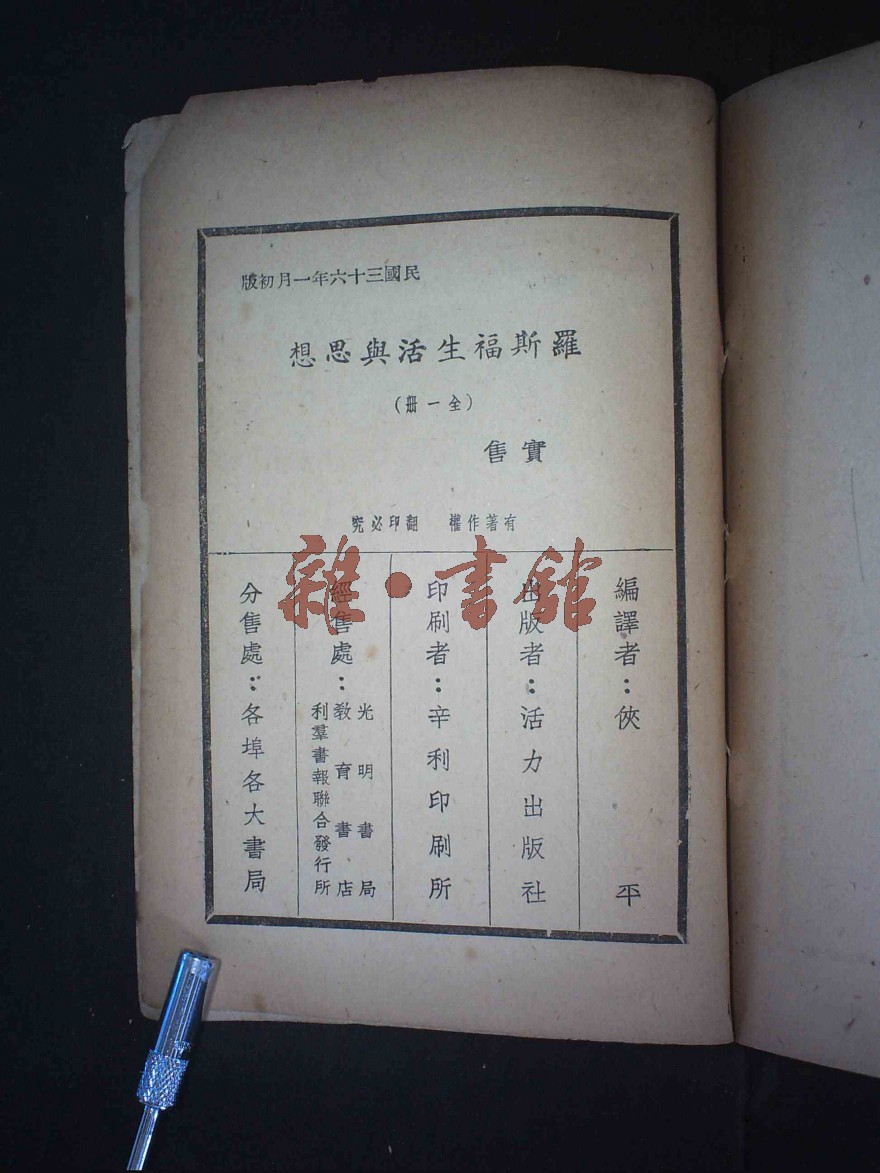 民國三十六年一月初版
羅斯福生活與思想
（全一册）
實售
有著作權　翻印必究
編譯者：俠平
出版者：活力出版社
印刷者：辛利印刷所
經售處：
光明書局
教育書店
利羣書報聯合發行所
分售處：各埠各大書局
雜·書館